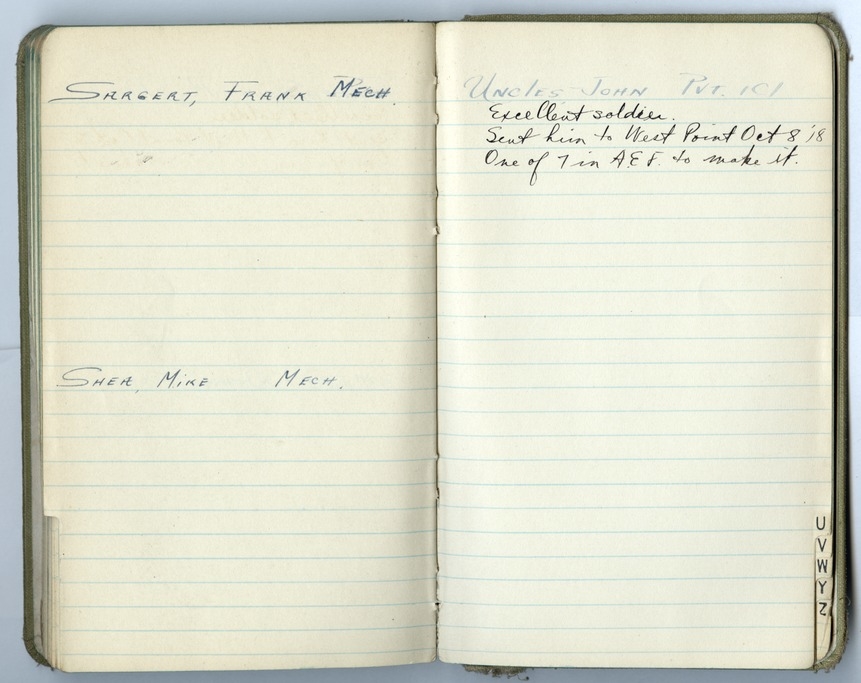 SARGERT, FRANK MECH.
SHEA, MIKE MECH.
UNCLES JOHN PVT. 1Cl
Excellent soldier.
Sent him to West Point Oct 8 '18
One of 7 in A.E.F. to make it.
U
V
W
Y
Z